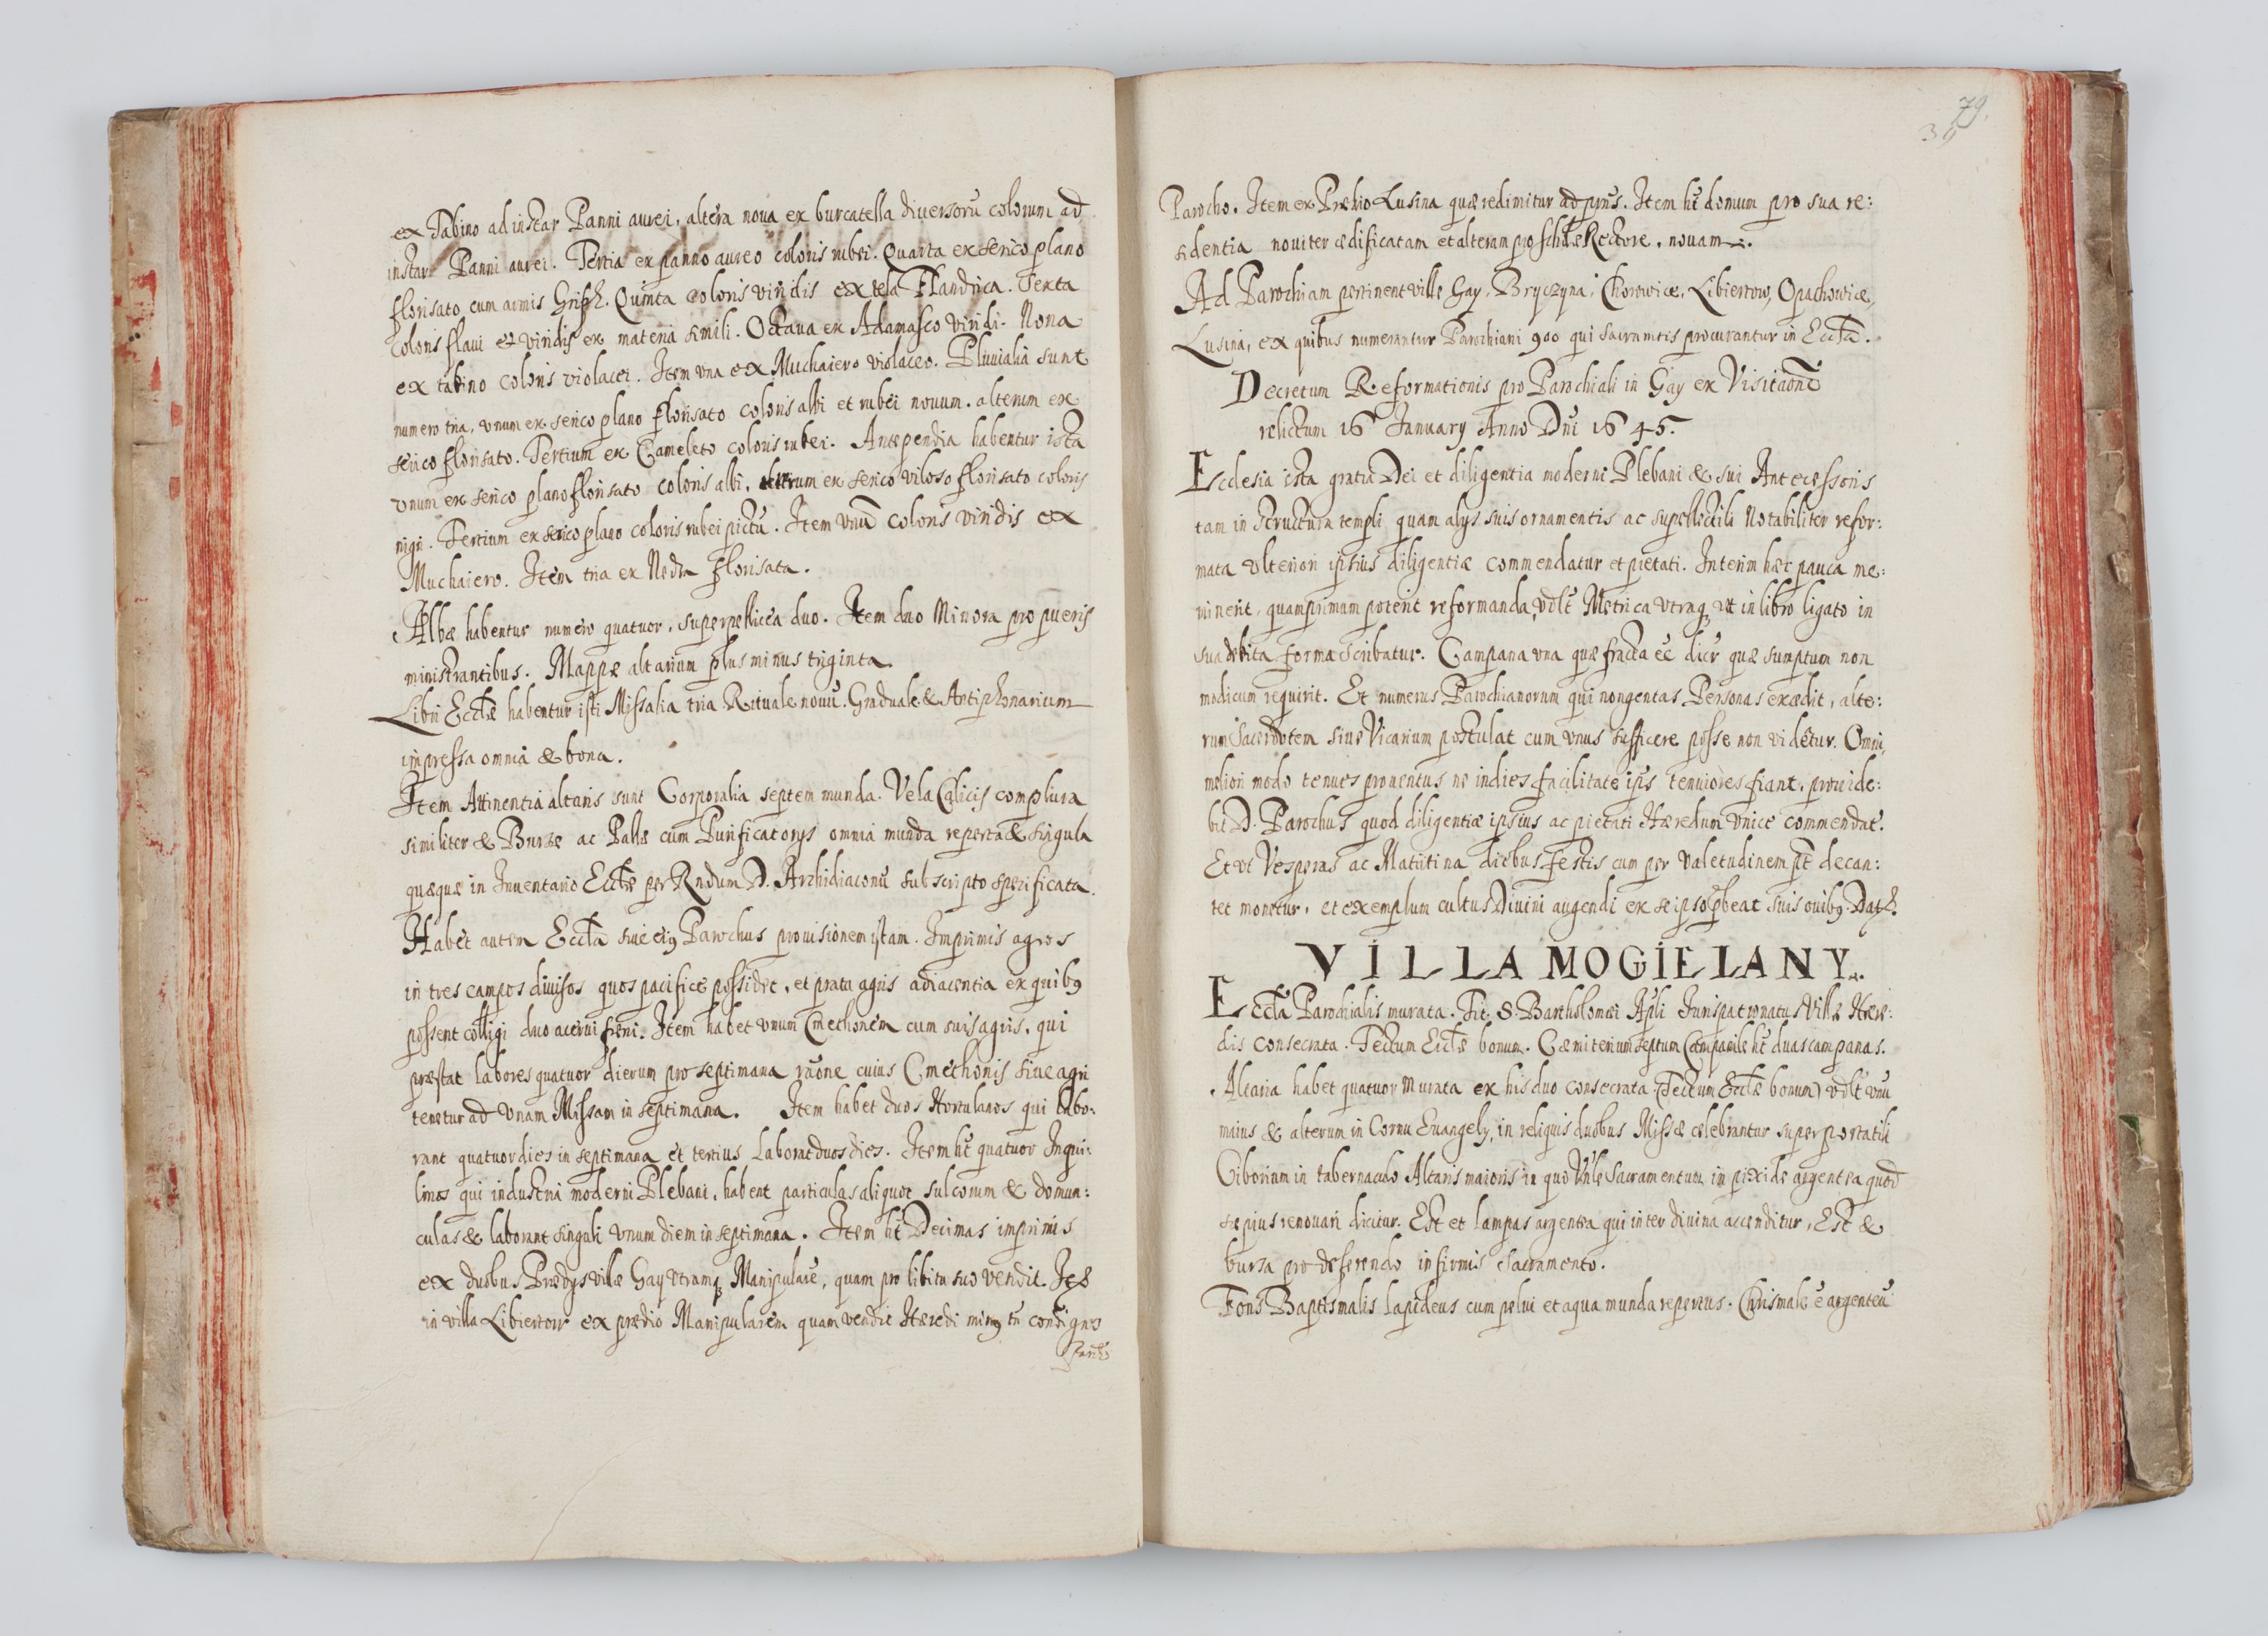 ex Tabino ad instar Panni aurei, altera noua ex burcatella diuersorũ colorum ad
instar Panni aurei. Tertia ex panno aureo coloris rubei. Quarta ex serico plano
florisato cum armis Griff. Quinta coloris viridis ex tela Flandrica. Sexta
coloris flaui et viridis ex materia simili. Octaua ex Adamasco viridi. Nona
ex tabino coloris violacei. Item vna ex Muchaiero violaceo. Pluuialia sunt
numero tria, vnum ex serico plano florisato coloris albi et rubei nouum. alterum ex
serico florisato. Tertium ex Cameleto coloris rubei. Antependia habentur ista
vnum ex serico plano florisato coloris albi, alterum ex serico viloso florisato coloris
nigri. Tertium ex serico plano coloris rubei pictũ. Item vnũ coloris viridis ex
Muchaiero. Item tria ex Nedra florisata.
Albæ habentur numero quatuor, superpellicea duo. Item duo Minora pro pueris
ministrantibus. Mappæ altarium plus minus triginta.
Libri Eccłæ habentur isti Missalia tria Rituale nouũ. Graduale & Antiphonarium
impressa omnia & bona.
Item Attinentia altaris sunt Corporalia septem munda. Vela Calicis complura
similiter & Bursæ ac Pallæ cum Purificatorijs omnia munda reperta & singula
quæque in Inuentario Eccłæ per Rndum D. Archidiaconũ subscripto specificata.
Habet autem Eccła siue eiq Parochus prouisionem istam. Imprimis agros
in tres campos diuisos quos pacifice possidet, et prata agris adiacentia ex quibq
possent colligi duo acerui fœni. Item habet vnum Cmethonem cum suis agris, qui
præstat labores quatuor dierum pro septimana rãone cuius Cmethonis siue agri
tenetur ad vnam Missam in septimana. Item habet duos Hortulanos qui labo:
rant quatuor dies in septimana et tertius laborat duos dies. Item ht̃ quatuor Inqui:
linos qui industria moderni Plebani, habent particulas aliquot sulcorum & domun:
culas & laborant singuli vnum diem in septimana. Item ht̃ Decimas imprimis
ex duobus Prædijs villæ Gay vtramq Manipularẽ, quam pro libitu suo vendit. Itẽ
in villa Libiertow ex prædio Manipularem quam vendit Hæredi minq tñ condigno
79.
39
Parocho. Item ex Prædio Lusina quæ redimitur ad prñs. Item ht̃ domum pro sua re:
sidentia nouiter ædificatam et alteram pro scholæ Rectore, nouam.
Ad Parochiam pertinent villæ Gay, Bryczyna, Chorowice, Libiertow, Opachowice,
Lusina, ex quibus numerantur Parochiani 900 qui sacramẽtis procurantur in Eccła.
Decretum Reformationis pro Parochiali in Gay ex Visitaõne
relictum 16 January Anno Dñi 1645.
Ecclesia ista gratia Dei et diligentia moderni Plebani & sui Antecessoris
tam in structura templi, quam alijs suis ornamentis ac supellectili notabiliter refor:
mata vlteriori ipsius diligentiæ commendatur et pietati. Interim hæc pauca me:
minerit, quamprimum poterit reformanda, vdlt̃ Metrica vtraq vt in libro ligato in
sua debita forma scribatur. Campana vna quæ fracta eẽ dicr̃ quæ sumptum non
modicum requirit. Et numerus Parochianorum qui nongentas Personas excedit, alte:
rum Sacerdotem siue Vicarium postulat cum vnus sufficere posse non videtur. Omni,
meliori modo tenues prouentus ne indies facilitate ipŝ tenuiores fiant, prouide:
bit D. Parochus quod diligentiæ ipsius ac pietati Hæredum vnice commendat̃.
Et vt Vesperas ac Matutina diebus festis cum per valetudinem pt̃ decan:
tet monetur, et exemplum cultus Diuini augendi ex se ipso p̃beat suis ouibq.
VILLA MOGIELANY.
Eccła Parochialis murata. Tit. S. Bartholomæi Apłi Iurispatronatus Villæ Hære:
dis consecrata. Tectum Eccłæ bonum. Cæmiterium septum Campanile ht̃ duas campanas.
Altaria habet quatuor murata ex his duo consecrata (Tectum Eccłæ bonum) vdlt̃ vnũ
maius & alterum in Cornu Euangely, in reliquis duobus Missæ celebrantur super portatili
Ciborium in tabernaculo Altaris maioris in quo Vnłe Sacramentum in pixide argentea quod
sæpius renouari dicitur. Est et lampas argentea qui inter diuina accenditur, Est &
bursa pro deferendo infirmis Sacramento.
Fons Baptismalis lapideus cum pelui et aqua munda repertus. Chrismale ẽ argenteũ